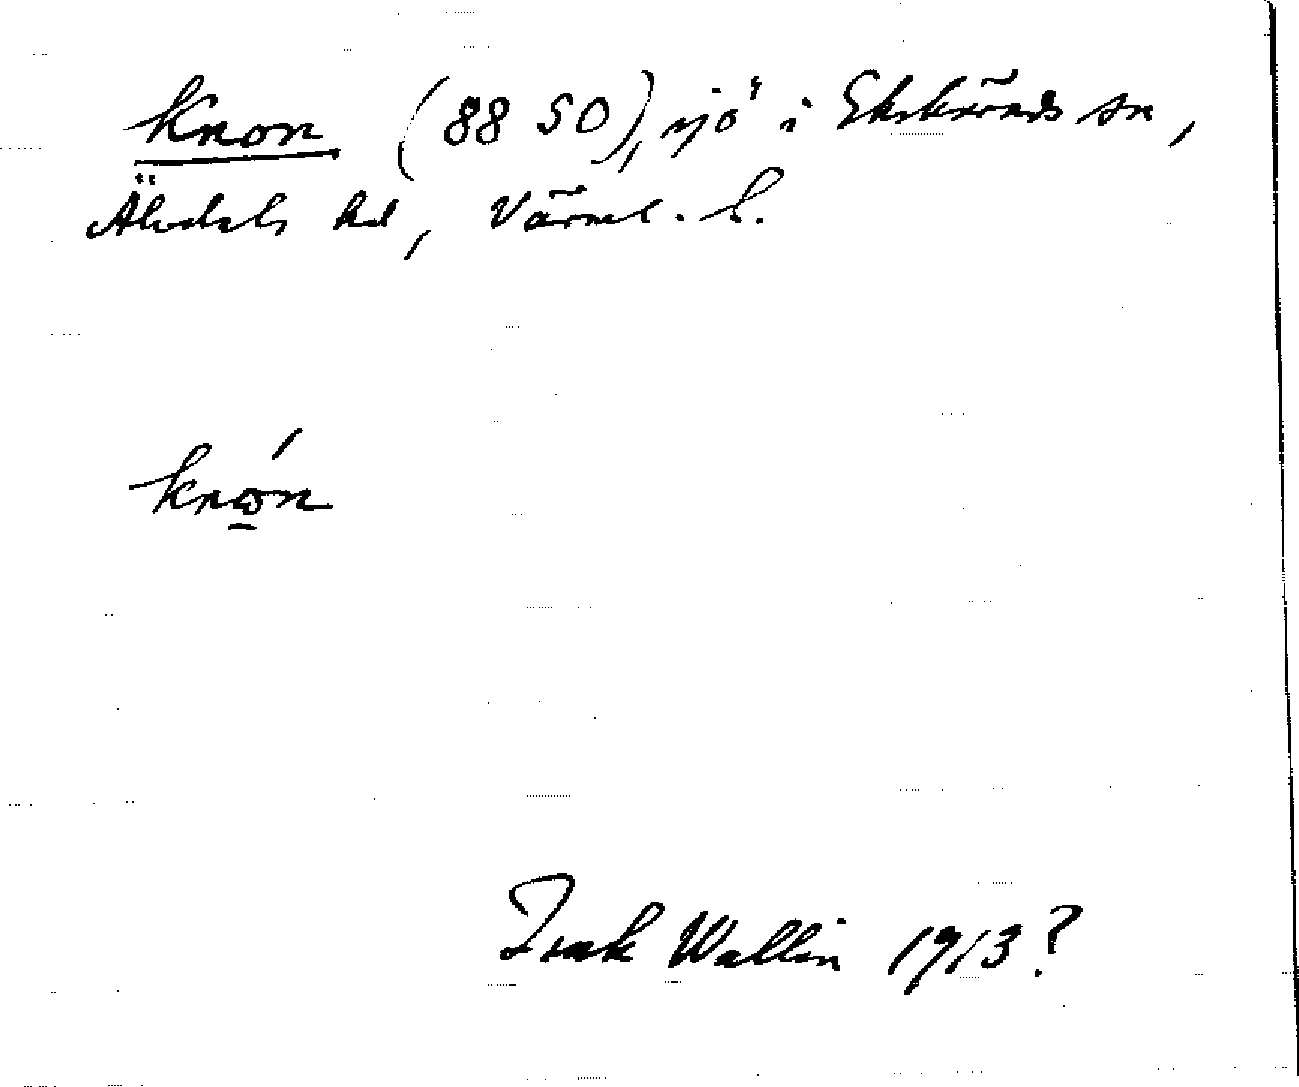 Knon (88 50), sjö i Ekshärads sn,
Älvdals hd, Värml. l.
knǿn
Isak Wallin 1913?